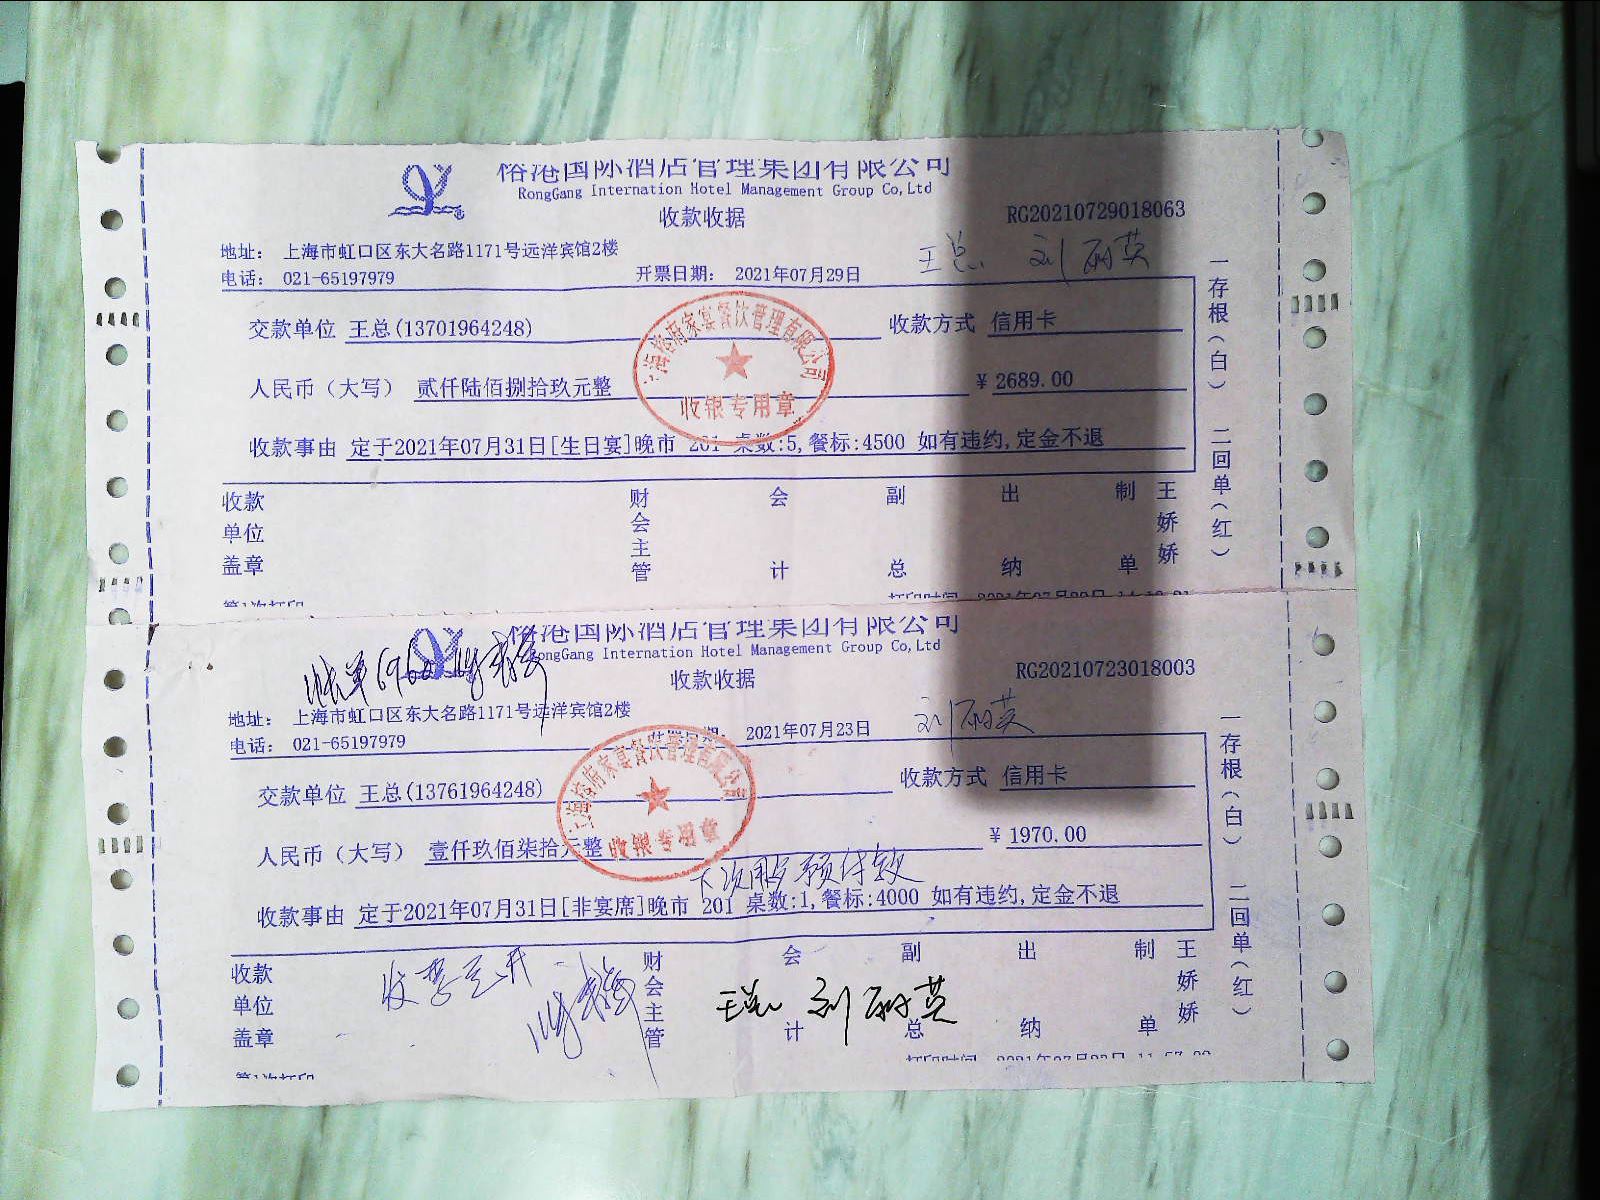 裕港国际酒店管理集团有限公司
RongGang Internation Hotel Management Group Co,Ltd
收款收据
RG20210729018063
地址： 上海市虹口区东大名路1171号远洋宾馆2楼
王总 刘丽英
电话： 021-65197979 开票日期： 2021年07月29日
交款单位 王总(13701964248) 收款方式 信用卡
人民币（大写） 贰仟陆佰捌拾玖元整 ￥2689.00
收款事由 定于2021年07月31日[生日宴]晚市 201 桌数:5,餐标:4500 如有违约,定金不退
上海裕府家宴餐饮管理有限公司
收银专用章
收款单位盖章 财会主管 会计 副总 出纳 制单 王娇娇
一存根（白） 二回单（红）
第1次打印 打印时间
裕港国际酒店管理集团有限公司
RongGang Internation Hotel Management Group Co,Ltd
收款收据
RG20210723018003
地址： 上海市虹口区东大名路1171号远洋宾馆2楼
刘丽英
电话： 021-65197979 2021年07月23日
交款单位 王总(13761964248) 收款方式 信用卡
人民币（大写） 壹仟玖佰柒拾元整 ￥1970.00
下次用 预付款
收款事由 定于2021年07月31日[非宴席]晚市 201 桌数:1,餐标:4000 如有违约,定金不退
上海裕府家宴餐饮管理有限公司
收银专用章
收款单位盖章 财会主管 会计 副总 出纳 制单 王娇娇
王总 刘丽英
一存根（白） 二回单（红）
第1次打印 打印时间